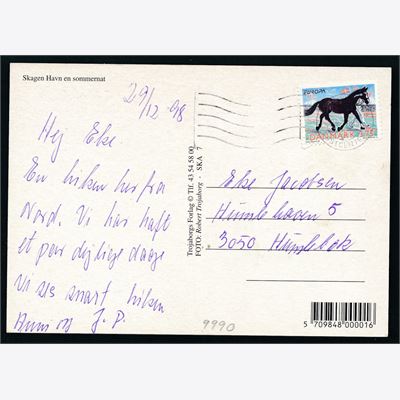 Skagen Havn en sommernat
29/12-98
Hej Eke
En hilsen her fra
Nord. Vi har haft
et par dejlige dage
Vi ses snart hilsen
og J. P.
Trojaborgs Forlag © Tlf. 43 54 58 00
FOTO: Robert Trojaborg - SKA 7
EUROPA
DANMARK
Eke Jacobsen
Humlehaven 5
3050 Humlebæk
9990
5 709848 000016